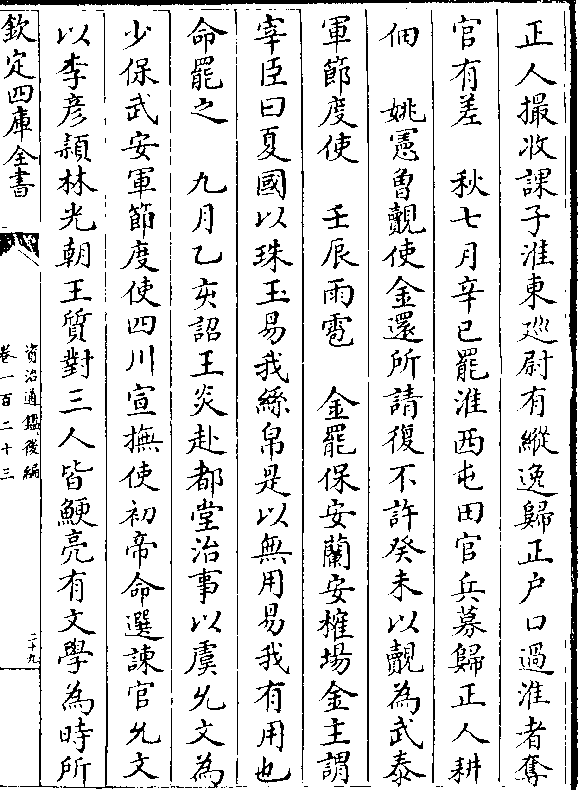 正人撮收課子淮東巡尉有縱逸歸正户口過淮者奪
官有差　秋七月辛巳罷淮西屯田官兵募歸正人耕
佃　姚憲曾覿使金還所請復不許癸未以覿為武泰
軍節度使　壬辰雨雹　金罷保安蘭安榷場金主謂
宰臣曰夏國以珠玉易我絲帛是以無用易我有用也
命罷之　九月乙亥詔王炎赴都堂治事以虞允文為
少保武安軍節度使四川宣撫使初帝命選諫官允文
以李彥潁林光朝王質對三人皆鯁亮有文學為時所
欽定四庫全書
資治通鑑後編
卷一百二十三
二十九